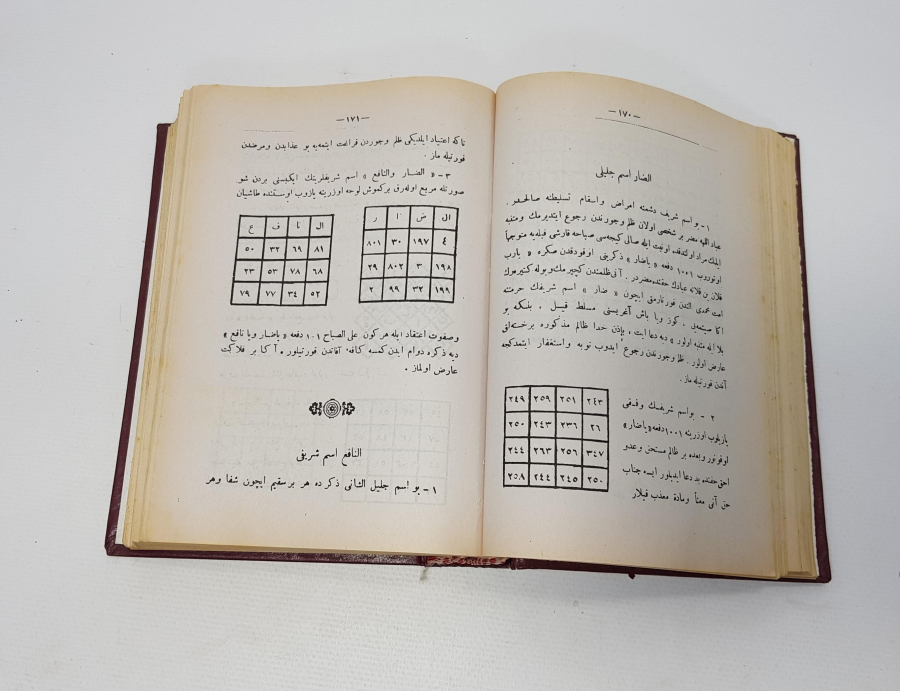 — ١٧٠ —
الضار اسم جليلى
١ - بو اسم شريف دشمنه امراض واسقام تسليطنه صالحدر.
عباد اللهه مضر بر شخصى اولان ظلم وجورندن رجوع ايتديرمك ومنيه
ايلمك مراد اولندقده اونيت ايله صالى كيجه‌سى صباحه قارشى قبله‌يه متوجهاً
اوتوروب ١٠٠١ دفعه « ياضار » ذكرينى اوقودقدن صكره « يارب
فلان بن فلانه عبادك حقنده مضردر. آنى ظلمندن كچيرمك ويوله كتيرمك
امت محمدى الندن قورتارمق ايچون « ضار » اسم شريفك حرمته
اكا صيتمه‌يى، كوز ويا باش آغريسنى مسلط قيل، بلكه بو
بلا ايله متنبه اولور » ديه دعا ايت، بإذن خدا ظالم مذكوره برخسته‌لق
عارض اولور. ظلم وجورندن رجوع ايدوب توبه واستغفار ايتمدكجه
آندن قورتيله ماز.
٢ - بو اسم شريفك وفقى
يازيلوب اوزرينه ١٠٠١ دفعه « ياضار »
اوقونور وبعده بر ظالم مستحق وعدو
احق حقنده بد دعا ايديلور ايسه جناب
حق آنى معناً ومادة معذب قيلار
٢٤٩ ٢٥٩ ٢٥١ ٢٤٣
٢٥٠ ٢٤٣ ٢٣٦ ٢٦
٢٤٤ ٢٦٣ ٢٥٦ ٣٤٧
٢٥٨ ٢٤٤ ٢٤٥ ٢٥٠
— ١٧١ —
تاكه اعتياد ايلديكى ظلم وجوردن فراغت ايتمه‌يه بو عذابدن ومرضدن
قورتيله ماز.
٣ - « الضار والنافع » اسم شريفلرينك ايكيسنى بردن شو
صورتله مربع اوله‌رق بركموش لوحه اوزرينه يازوب اوستنده طاشيان
ال ض ا ر
٤ ١٩٧ ٣٠ ٨٠١
١٩٨ ٣ ٨٠٢ ٢٩
١٩٩ ٣٢ ٩٩ ٢
ال نا ف ع
٨١ ٦٩ ٣٢ ٥٠
٦٨ ٧٨ ٥٣ ٢٣
٥٢ ٣٤ ٧٧ ٧٩
وصفوت اعتقاد ايله هركون على الصباح ١٠١ دفعه « ياضار ويا نافع »
ديه ذكره دوام ايدن كمسه كافهٔ آفاتدن قورتيلور. آكا بر فلاكت
عارض اولماز.
النافع اسم شريفى
١ - بو اسم جليل الثانى ذكرده هر برسقيم ايچون شفا وهر